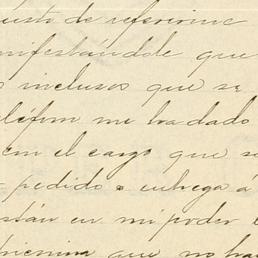 usto de referirme
nifestándole que
s inclusos que se
léfono me ha dado
en el cargo que se
pedido o entrega á
stán en mi poder
que no ha